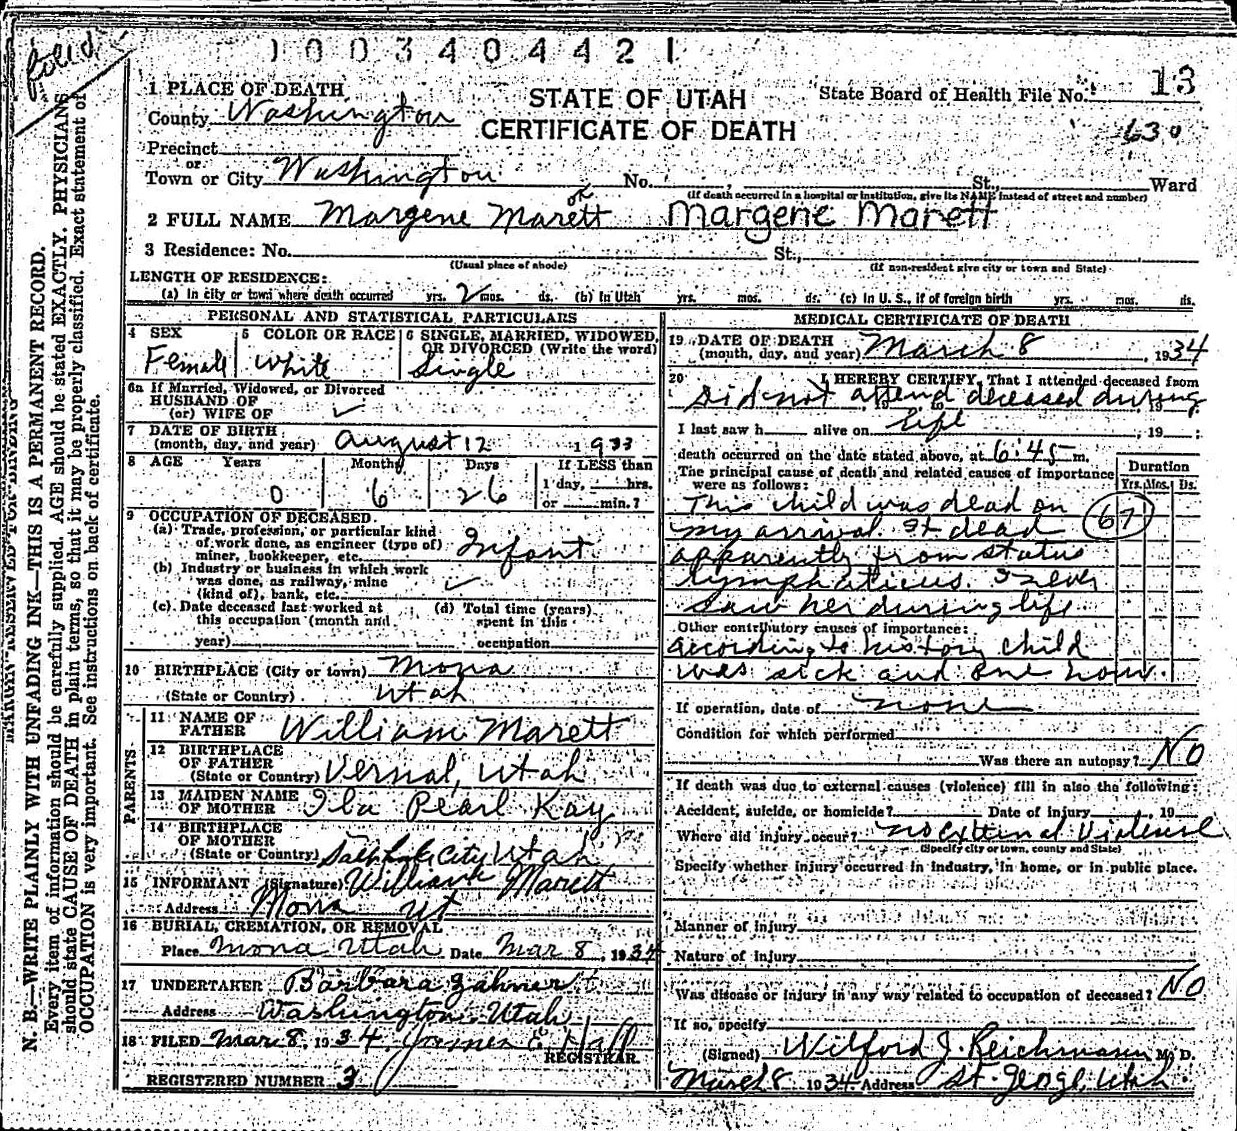 filed
1003404421
1 PLACE OF DEATH
County Washington
Precinct
or
Town or City Washington No. St., Ward
(If death occurred in a hospital or institution, give its NAME instead of street and number)
STATE OF UTAH
CERTIFICATE OF DEATH
State Board of Health File No. 13
630
2 FULL NAME Margene Marett or Margene Marett
3 Residence: No. St.,
(Usual place of abode) (If non-resident give city or town and State)
LENGTH OF RESIDENCE:
(a) In city or town where death occurred yrs. 2 mos. ds. (b) In Utah yrs. mos. ds. (c) In U. S., if of foreign birth yrs. mos. ds.
PERSONAL AND STATISTICAL PARTICULARS
4 SEX Female
5 COLOR OR RACE White
6 SINGLE, MARRIED, WIDOWED, OR DIVORCED (Write the word) Single
6a If Married, Widowed, or Divorced
HUSBAND OF
(or) WIFE OF
7 DATE OF BIRTH
(month, day, and year) August 12 1933
8 AGE Years 0 Months 6 Days 26 If LESS than
1 day, hrs.
or min.?
9 OCCUPATION OF DECEASED.
(a) Trade, profession, or particular kind
of work done, as engineer (type of)
miner, bookkeeper, etc. Infant
(b) Industry or business in which work
was done, as railway, mine
(kind of), bank, etc.
(c) Date deceased last worked at
this occupation (month and
year)
(d) Total time (years)
spent in this
occupation
10 BIRTHPLACE (City or town) Mona
(State or Country) Utah
PARENTS
11 NAME OF
FATHER William Marett
12 BIRTHPLACE
OF FATHER
(State or Country) Vernal, Utah
13 MAIDEN NAME
OF MOTHER Iba Pearl Kay
14 BIRTHPLACE
OF MOTHER
(State or Country) Salt Lake City Utah
15 INFORMANT (Signature) William Marett
Address Mona Ut
16 BURIAL, CREMATION, OR REMOVAL
Place Mona Utah Date Mar 8, 1934
17 UNDERTAKER Barbara
Address Washington Utah
18 FILED Mar 8, 1934
REGISTRAR.
REGISTERED NUMBER 3
MEDICAL CERTIFICATE OF DEATH
19 DATE OF DEATH
(month, day, and year) March 8, 1934
20 I HEREBY CERTIFY, That I attended deceased from
Did not attend deceased during
life
I last saw h alive on , 19 ;
death occurred on the date stated above, at 6:45 m.
The principal cause of death and related causes of importance
were as follows:
Duration
Yrs. Mos. Ds.
This child was dead on
my arrival. It dead
apparently from status
lymphaticus. I never
saw her during life
67
Other contributory causes of importance:
according to history child
was sick and one hour.
If operation, date of none
Condition for which performed
Was there an autopsy? No
If death was due to external causes (violence) fill in also the following:
Accident, suicide, or homicide? Date of injury , 19
Where did injury occur? no external violence
(Specify city or town, county and State)
Specify whether injury occurred in industry, in home, or in public place.
Manner of injury
Nature of injury
Was disease or injury in any way related to occupation of deceased? No
If so, specify
(Signed) Wilford J. Reichmann M. D.
March 8 1934 Address St. George, Utah.
N. B.—WRITE PLAINLY WITH UNFADING INK—THIS IS A PERMANENT RECORD.
Every item of information should be carefully supplied. AGE should be stated EXACTLY. PHYSICIANS
should state CAUSE OF DEATH in plain terms, so that it may be properly classified. Exact statement of
OCCUPATION is very important. See instructions on back of certificate.